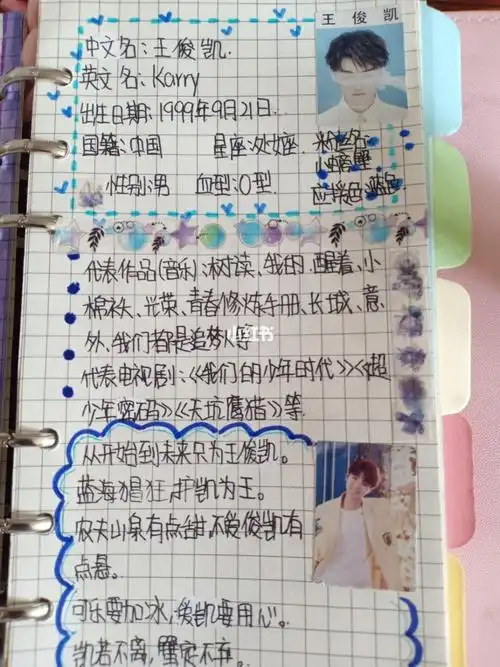 王俊凯
中文名:王俊凯.
英文名:Karry
出生日期:1999年9月21日.
国籍:中国 星座:处女座. 粉丝名:
小螃蟹
性别:男 血型:O型 应援色:蓝色
代表作品(音乐):树读、我的、醒着、小
棉袄、光荣、青春修炼手册、长城、意
外、我们都是追梦人等
代表电视剧:《我们的少年时代》《超
少年密码》《天坑鹰猎》等.
小红书
从开始到未来只为王俊凯。
蓝海猖狂,护凯为王。
农夫山泉有点甜,不爱俊凯有
点悬。
可乐要加冰,爱凯要用心。
凯若不离,蟹定不弃。